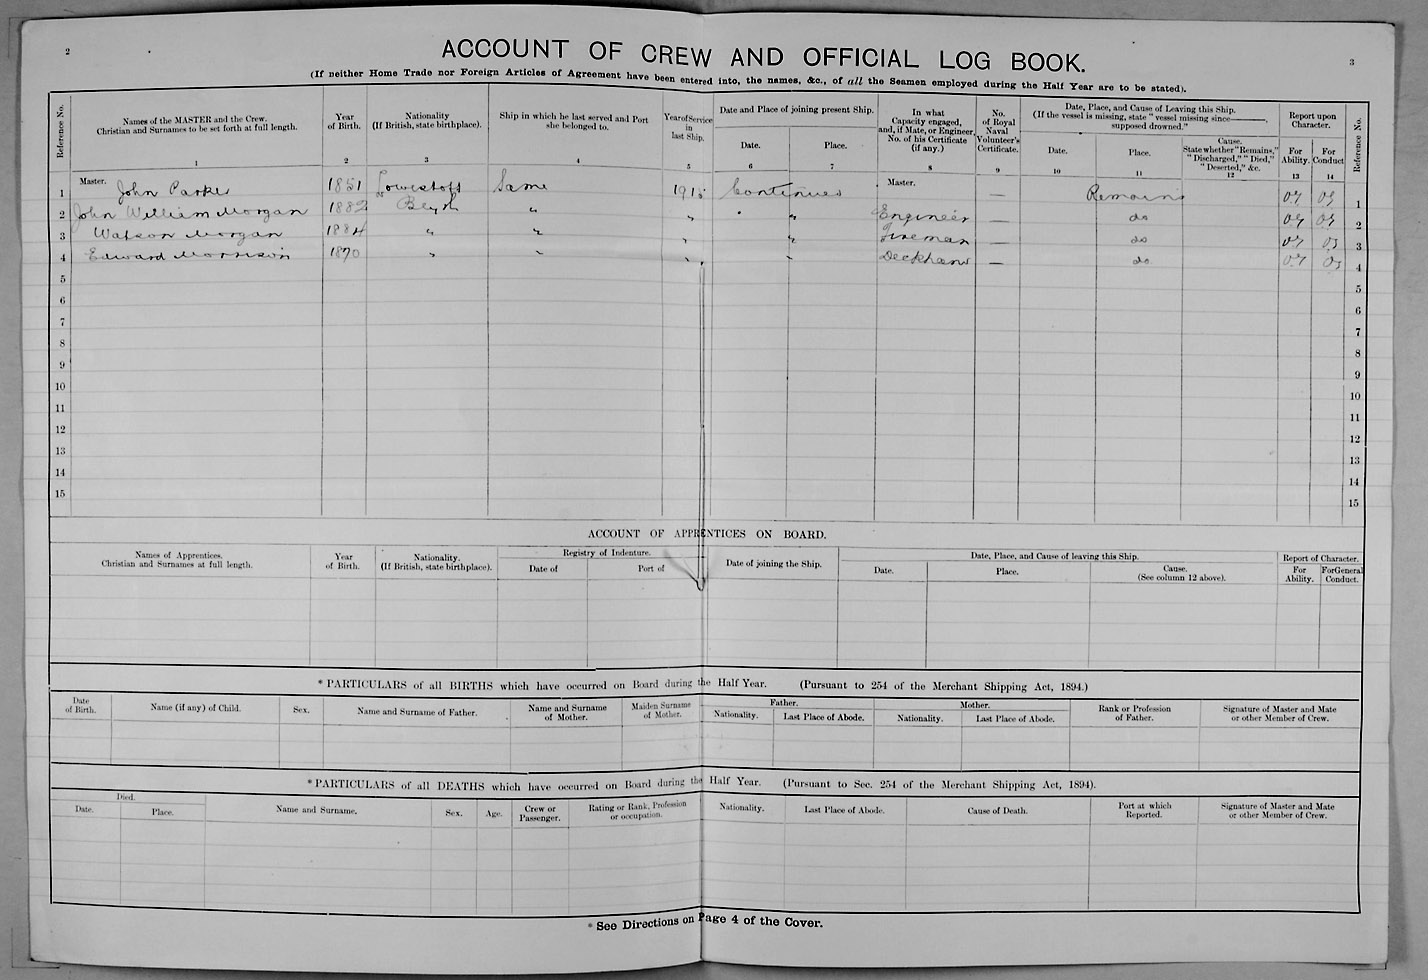 2
3
ACCOUNT OF CREW AND OFFICIAL LOG BOOK.
(If neither Home Trade nor Foreign Articles of Agreement have been entered into, the names, &c., of all the Seamen employed during the Half Year are to be stated).
Reference No.
Names of the MASTER and the Crew.
Christian and Surnames to be set forth at full length.
1
Year
of Birth.
2
Nationality
(If British, state birthplace).
3
Ship in which he last served and Port
she belonged to.
4
Year of Service
in
last Ship.
5
Date and Place of joining present Ship.
Date.
6
Place.
7
In what
Capacity engaged,
and, if Mate, or Engineer,
No. of his Certificate
(if any.)
8
No.
of Royal
Naval
Volunteer's
Certificate.
9
Date, Place, and Cause of Leaving this Ship.
(If the vessel is missing, state "vessel missing since———,
supposed drowned."
Date.
10
Place.
11
Cause.
State whether "Remains,"
"Discharged," "Died,"
"Deserted," &c.
12
Report upon
Character.
For
Ability.
13
For
Conduct
14
Reference No.
1 Master. John Parker 1851 Lowestoft Same 1915 Continues Master. — Remains 1
2 John William Morgan 1882 Blyth " " " Engineer — do 2
3 Watson Morgan 1884 " " " " Fireman — do 3
4 Edward Morrison 1870 " " " " Deckhand — do 4
5 5
6 6
7 7
8 8
9 9
10 10
11 11
12 12
13 13
14 14
15 15
ACCOUNT OF APPRENTICES ON BOARD.
Names of Apprentices.
Christian and Surnames at full length.
Year
of Birth.
Nationality.
(If British, state birthplace).
Registry of Indenture.
Date of
Port of
Date of joining the Ship.
Date, Place, and Cause of leaving this Ship.
Date.
Place.
Cause.
(See column 12 above).
Report of Character.
For
Ability.
For General
Conduct.
* PARTICULARS of all BIRTHS which have occurred on Board during the Half Year. (Pursuant to 254 of the Merchant Shipping Act, 1894.)
Date
of Birth.
Name (if any) of Child.
Sex.
Name and Surname of Father.
Name and Surname
of Mother.
Maiden Surname
of Mother.
Father.
Nationality.
Last Place of Abode.
Mother.
Nationality.
Last Place of Abode.
Rank or Profession
of Father.
Signature of Master and Mate
or other Member of Crew.
* PARTICULARS of all DEATHS which have occurred on Board during the Half Year. (Pursuant to Sec. 254 of the Merchant Shipping Act, 1894).
Died.
Date.
Place.
Name and Surname.
Sex.
Age.
Crew or
Passenger.
Rating or Rank, Profession
or occupation.
Nationality.
Last Place of Abode.
Cause of Death.
Port at which
Reported.
Signature of Master and Mate
or other Member of Crew.
* See Directions on Page 4 of the Cover.